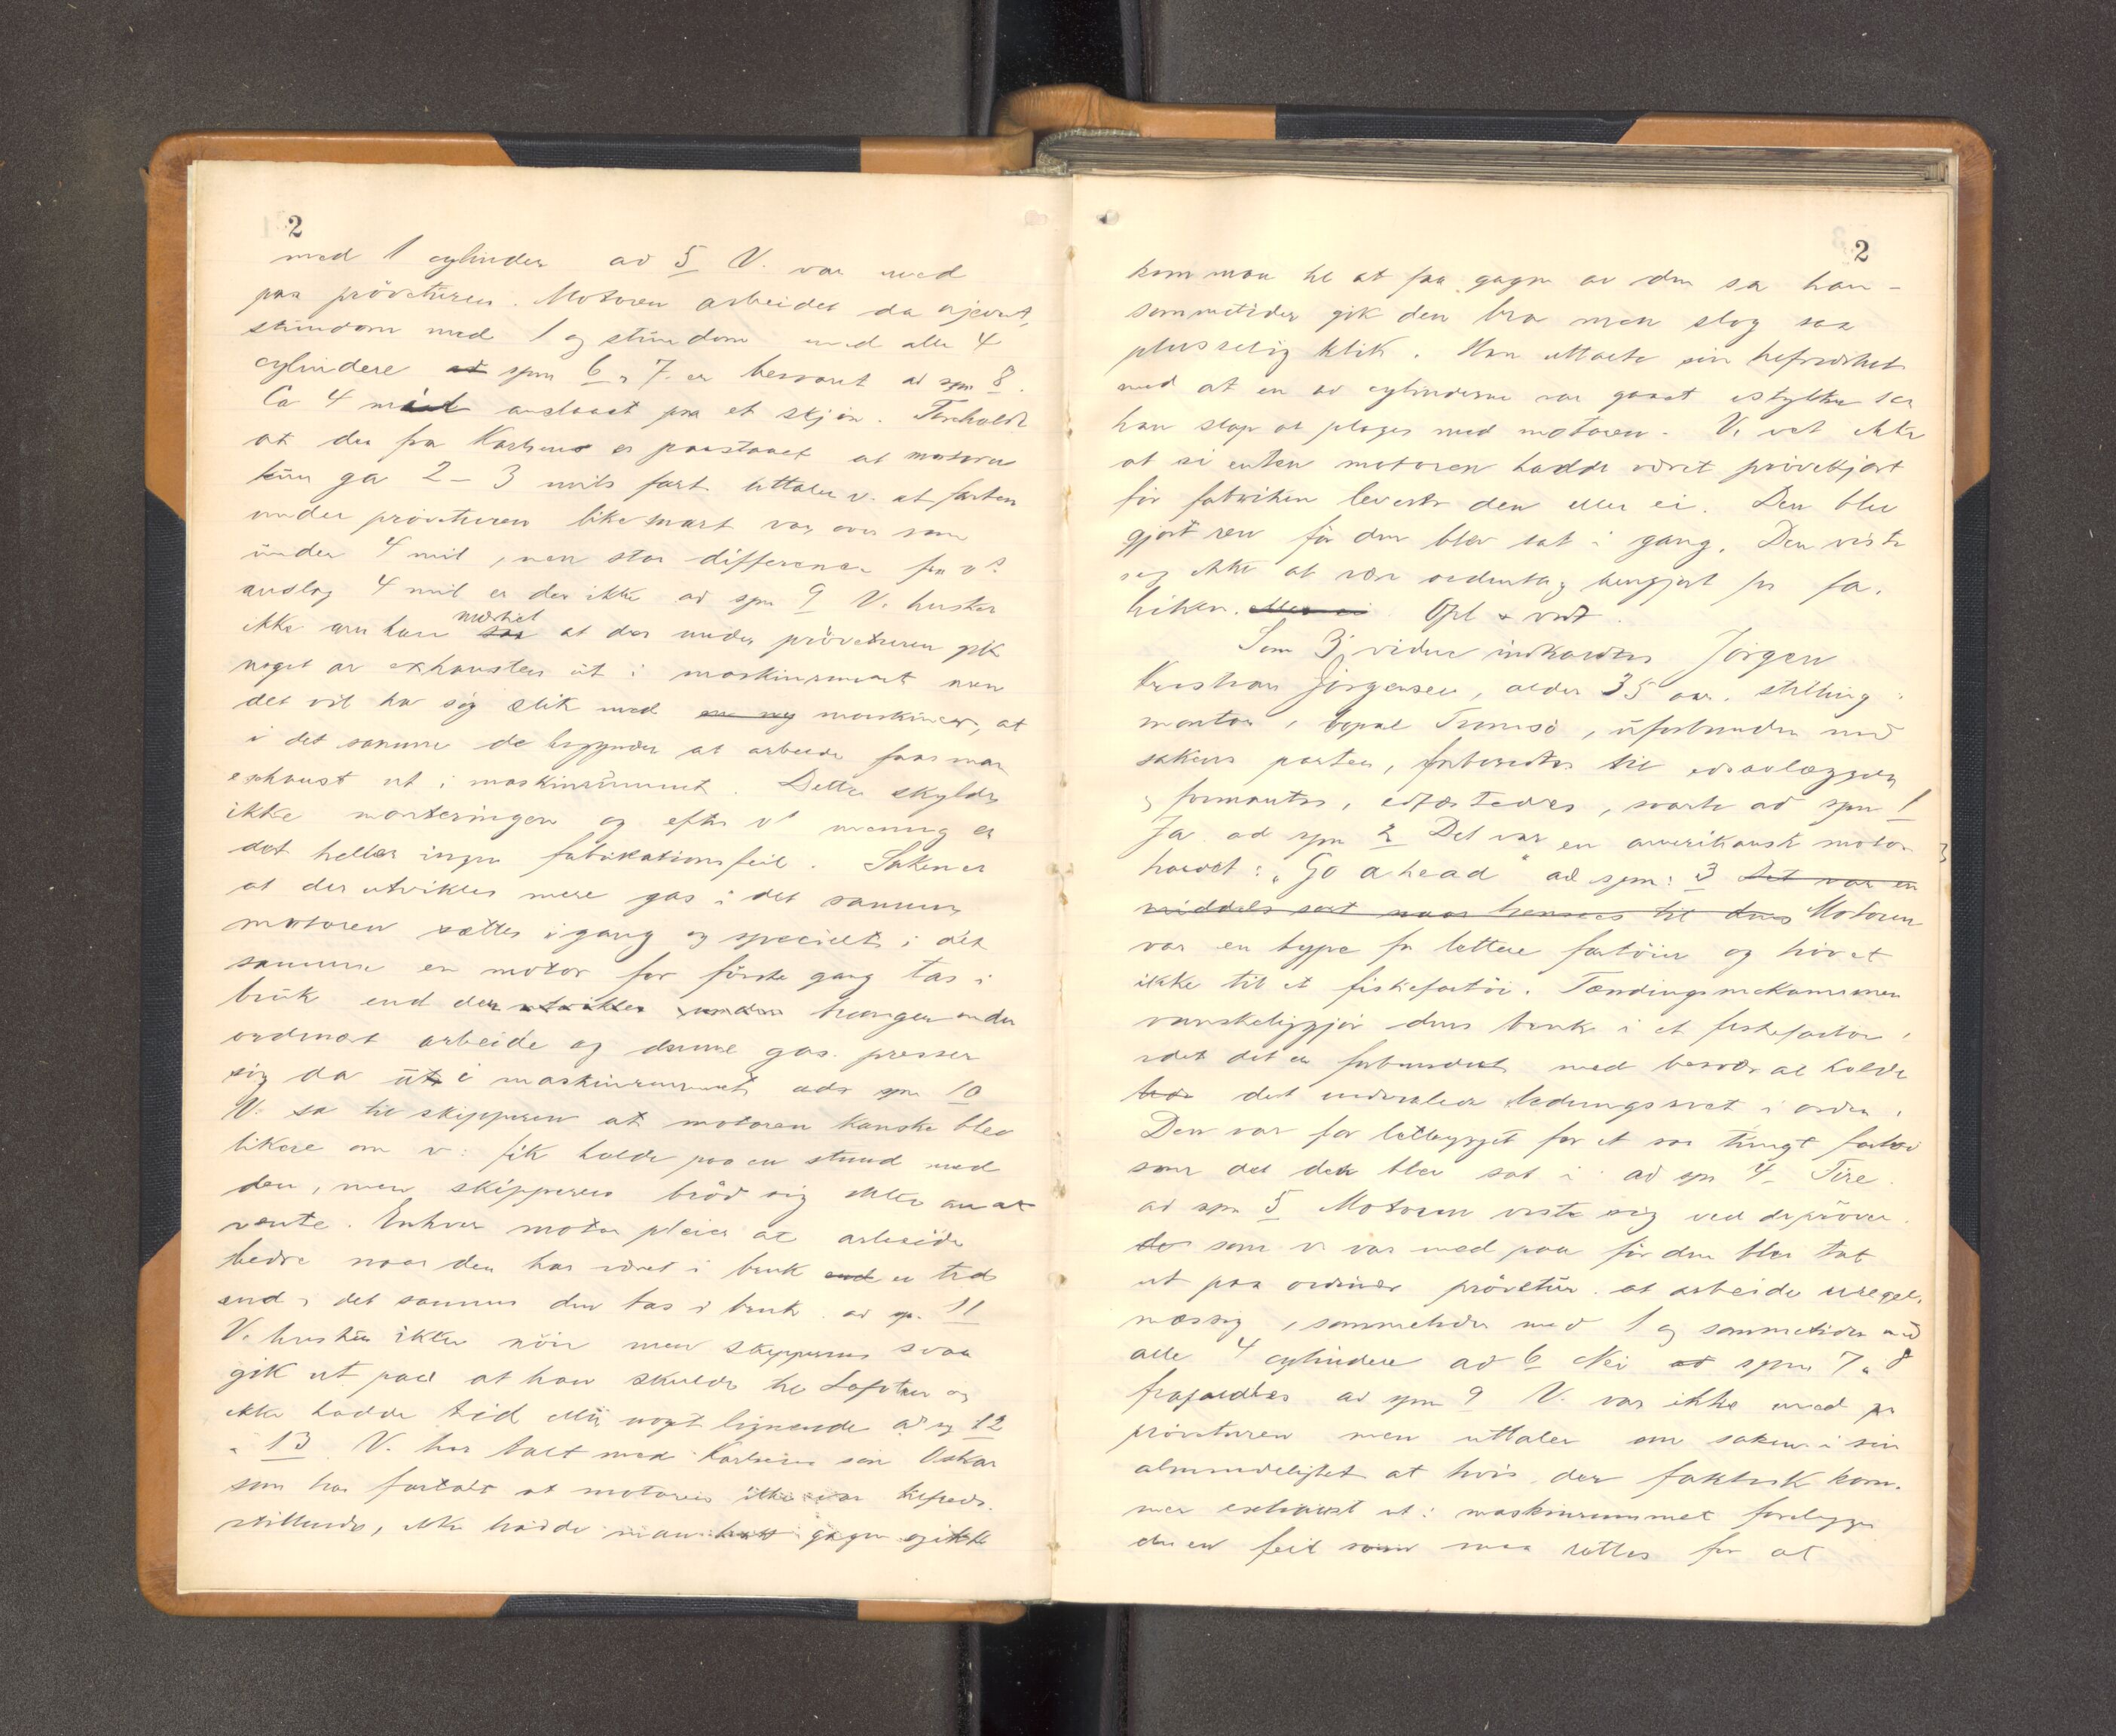 2
med 1 cylinder ad 5 V. var med
paa prøveturen. Motoren arbeidet da ujevnt,
stundom med 1 og stundom med alle 4
cylindere ad spm 6 " 7 er besvart ad spm 8.
Ca 4 mil anslaat paa et skjøn. Foreholdt
at der fra Karlsens er paastaaet at motoren
kun ga 2 - 3 mils fart uttaler v. at farten
under prøveturen likesnart var over som
under 4 mil, nen stor difference fra vs
anslag 4 mil er der ikke ad spm 9 V. husker
ikke om han merket saa at der under prøveturen gik
noget av exhausten ut i maskinrummet men
det vil ha sig slik med en ny maskiner, at
i det samme de begynder at arbeide faar man
exhaust ut i maskinrummet. Dette skyldes
ikke monteringen og efter vs mening er
det heller ingen fabrikationsfeil. Saken er
at der utvikles mere gas i det samme
motoren sættes igang og specielt i det
samme en motor for første gang tas i
bruk end der utvikles under trænges under
ordinært arbeide og denne gas presser
sig da ut i maskinrummet ad spm 10
V. sa til skipperen at motoren kanske blev
likere om v: fik holde paa en stund med
den, men skipperen brød sig ikke om at
vente. Enhver motor pleier at arbeide
bedre naar den har været i bruk end en tid
end i det samme den tas i bruk. ad sp. 11
V. husker ikke nøie men skipperens svar
gik ut paa at han skulde til Lofoten og
ikke hadde tid eller noget lignende ad sp 12
" 13 V. har talt med Karlsens søn Oskar
som har fortalt at motoren ikke var tilfreds-
stillende, ikke hadde man hat gagn og ikke
2
kom man til at faa gagn av den sa han -
sommetider gik den bra men slog saa
plusselig klik. Han uttalte sin tilfredshet
med at en av cylinderne var gaaet istykker saa
han slap at plages med motoren. V. vet ikke
at si enten motoren hadde været prøvekjørt
før fabriken leverte den eller ei. Den blev
gjort ren før den blev sat i gang. Den viste
sig ikke at være ordentlig rengjort fra fa-
briken. eller ei Opl & vedt.
Som 3 vidne indkaldtes Jørgen
Kristian Jørgensen, alder 35 aar. stilling:
montør, bopæl Tromsø, uforbunden med
sakens parter, forberedtes til edsavlæggelse
og formantes, edfæstedes, svarte ad spm 1
Ja ad spm 2 Det var en amerikansk motor
hævet: "Go ahead" ad spm: 3 Det var en
middels sort naar henses til dens Motoren
var en type for lettere fartøier og høvet
ikke til et fiskefartøi. Tændingsmekanismen
vanskeliggjør dens bruk i et fiskefartøi,
idet det er forbundet med besvær at holde
hos det indviklede ledningsnet i orden.
Den var for letbygget for et saa tungt fartøi
som det den blev sat i ad spm 4 Fire.
ad spm 5 Motoren viste sig ved de prøver
de som v. var med paa før den blev tat
ut paa ordinær prøvetur at arbeide uregel-
mæssig, sommetider med 1 og sommetider med
alle 4 cylindere ad 6 Nei ad spm 7 " 8
frafaldtes ad spm 9 V. var ikke med paa
prøveturen men uttaler om saken i sin
almindelighet at hvis der faktisk kom-
mer exhaust ut i maskinrummet foreligger
der en feil som maa rettes for at